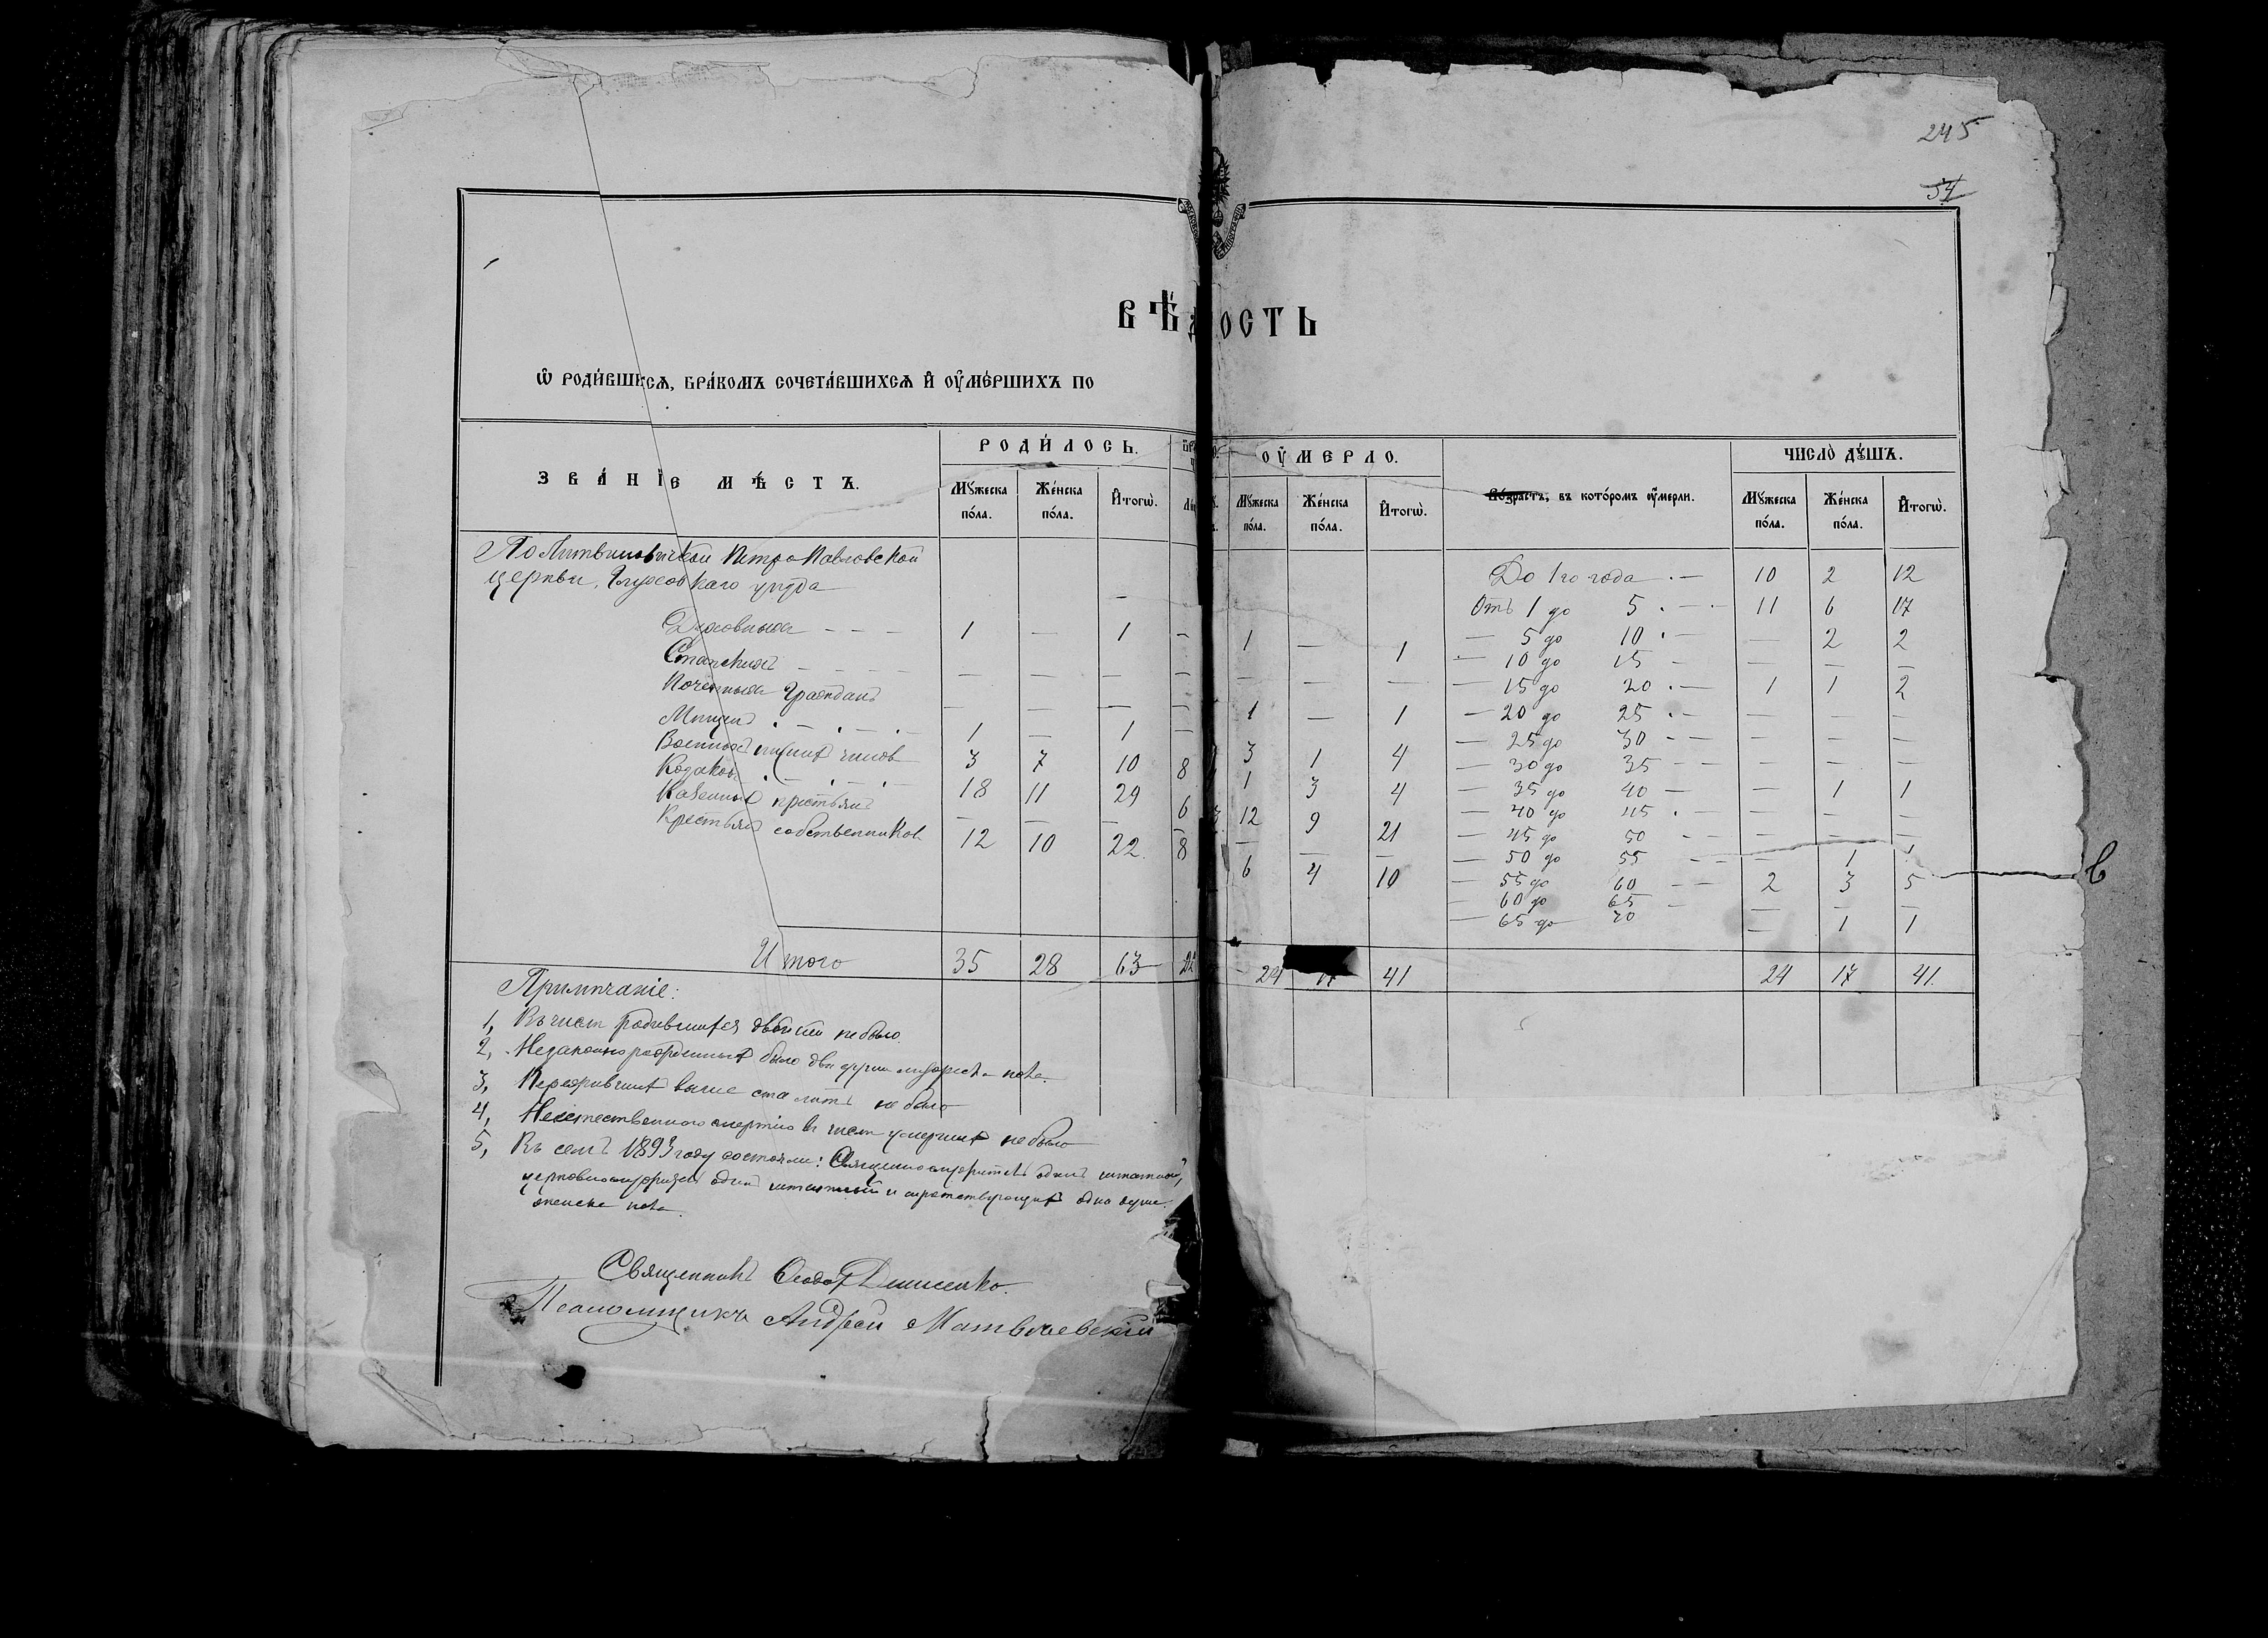 245
54
ВѢДОСТЬ
Ѡ РОДИВШИХСЯ, БРАКОМЪ СОЧЕТАВШИХСЯ И ОУМЕРШИХЪ ПО
ЗВАНІЕ МѢСТЪ. РОДИЛОСЬ. ОУМЕРЛО. Возрастъ, въ которомъ оумерли. ЧИСЛО ДУШЪ.
Мужеска пола. Женска пола. Итогѡ. Мужеска пола. Женска пола. Итогѡ. Мужеска пола. Женска пола. Итогѡ.
По Литвиновичской Петро Павловской
церкви, Глуховскаго уѣзда
Духовныхъ - - - 1 — 1 - 1 — 1
Статскихъ - - - - — — — — — — —
Почетныхъ Гражданъ — — — — 1 — 1
Мѣщанъ . - . - . 1 — 1 — 3 1 4
Военныхъ нижнихъ чиновъ 3 7 10 8 1 3 4
Козаковъ . - . - . 18 11 29 6 12 9 21
Казенныхъ крестьянъ — — — — — — —
Крестьянъ собственниковъ 12 10 22 8 6 4 10
Итого 35 28 63 22 24 17 41
До 1го года . — 10 2 12
Отъ 1 до 5 . — 11 6 17
— 5 до 10 . — — 2 2
— 10 до 15 — — — —
— 15 до 20 . — 1 1 2
— 20 до 25 . — — — —
— 25 до 30 — — — — —
— 30 до 35 — — — — —
— 35 до 40 — — 1 1
— 40 до 45 . — — — —
— 45 до 50 — — — — —
— 50 до 55 — — — 1 1
— 55 до 60 — — 2 3 5
— 60 до 65 — — — —
— 65 до 70 — 1 1
24 17 41.
Примѣчаніе:
1, Въ числѣ родившихся двойни не было.
2, Незаконнорожденныхъ было двѣ души мужеска пола.
3, Пережившихъ выше ста лѣтъ не было
4, Неестественною смертію въ числѣ умершихъ не было
5, Въ семъ 1893 году состояли: Священнослужитель одинъ штатный,
церковнослужитель одинъ штатный и сиротствующихъ одна душа
женска пола.
Священникъ Ѳеодоръ Денисенко.
Псаломщикъ Андрей Матвѣевскій